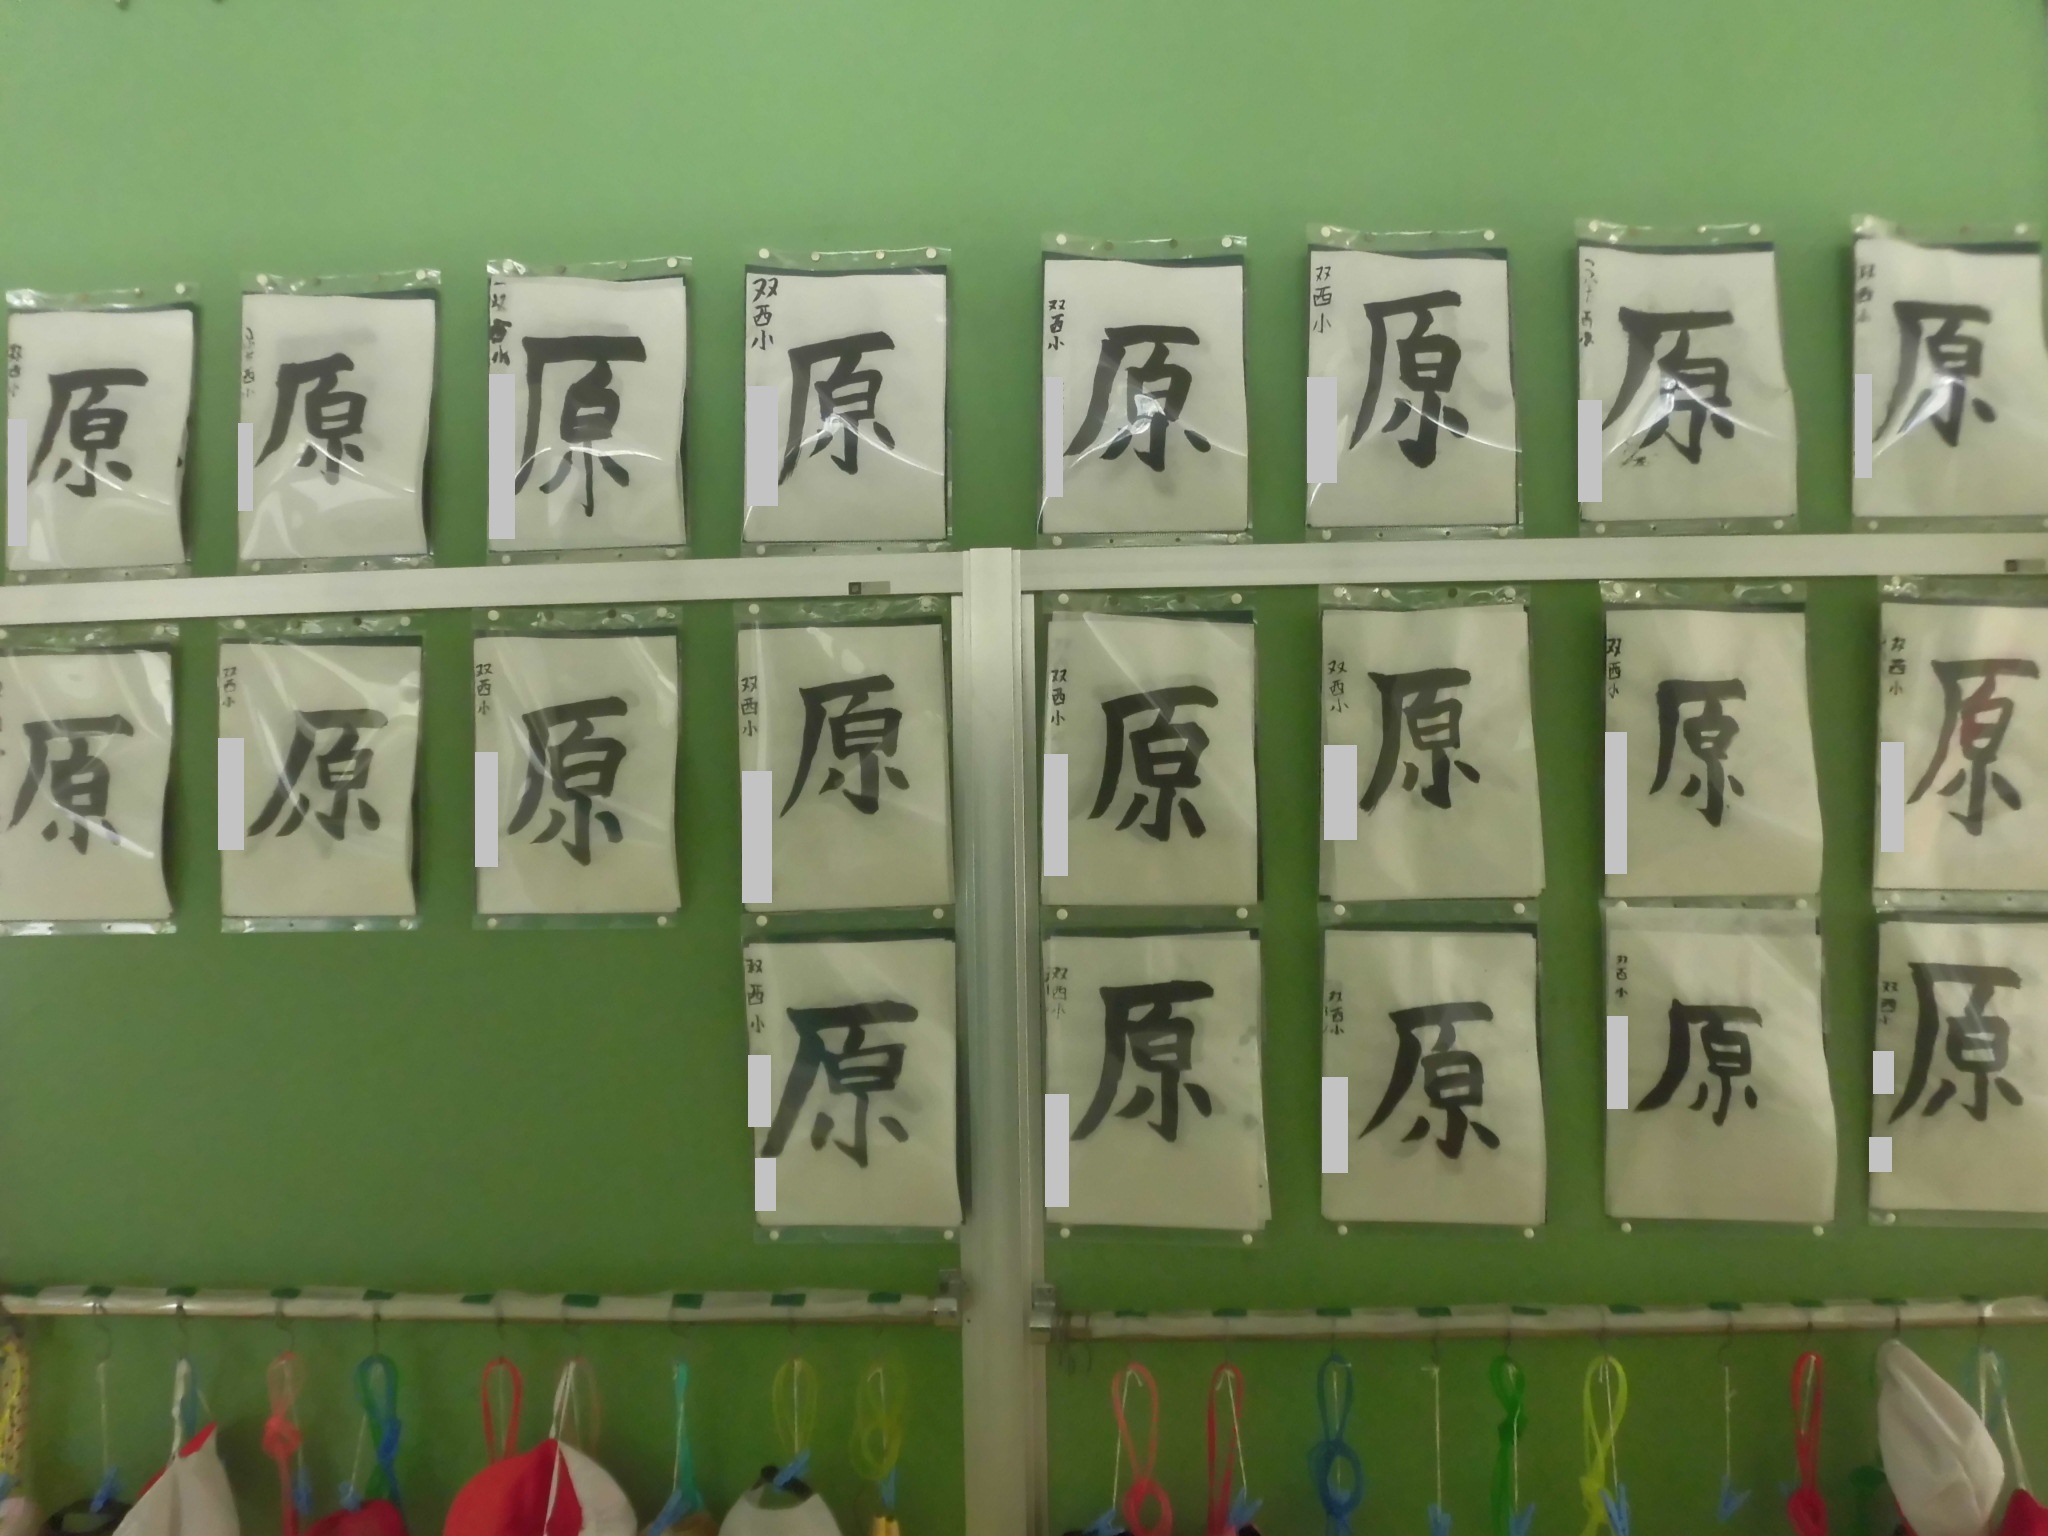 双西小
原
西小
原
双西小
原
双西小
原
双西小
原
双西小
原
西小
原
双西小
原
原
双西小
原
双西小
原
双西小
原
双西小
原
双西小
原
双西小
原
双西小
原
双西小
原
双西小
原
双西小
原
双西小
原
双西小
原